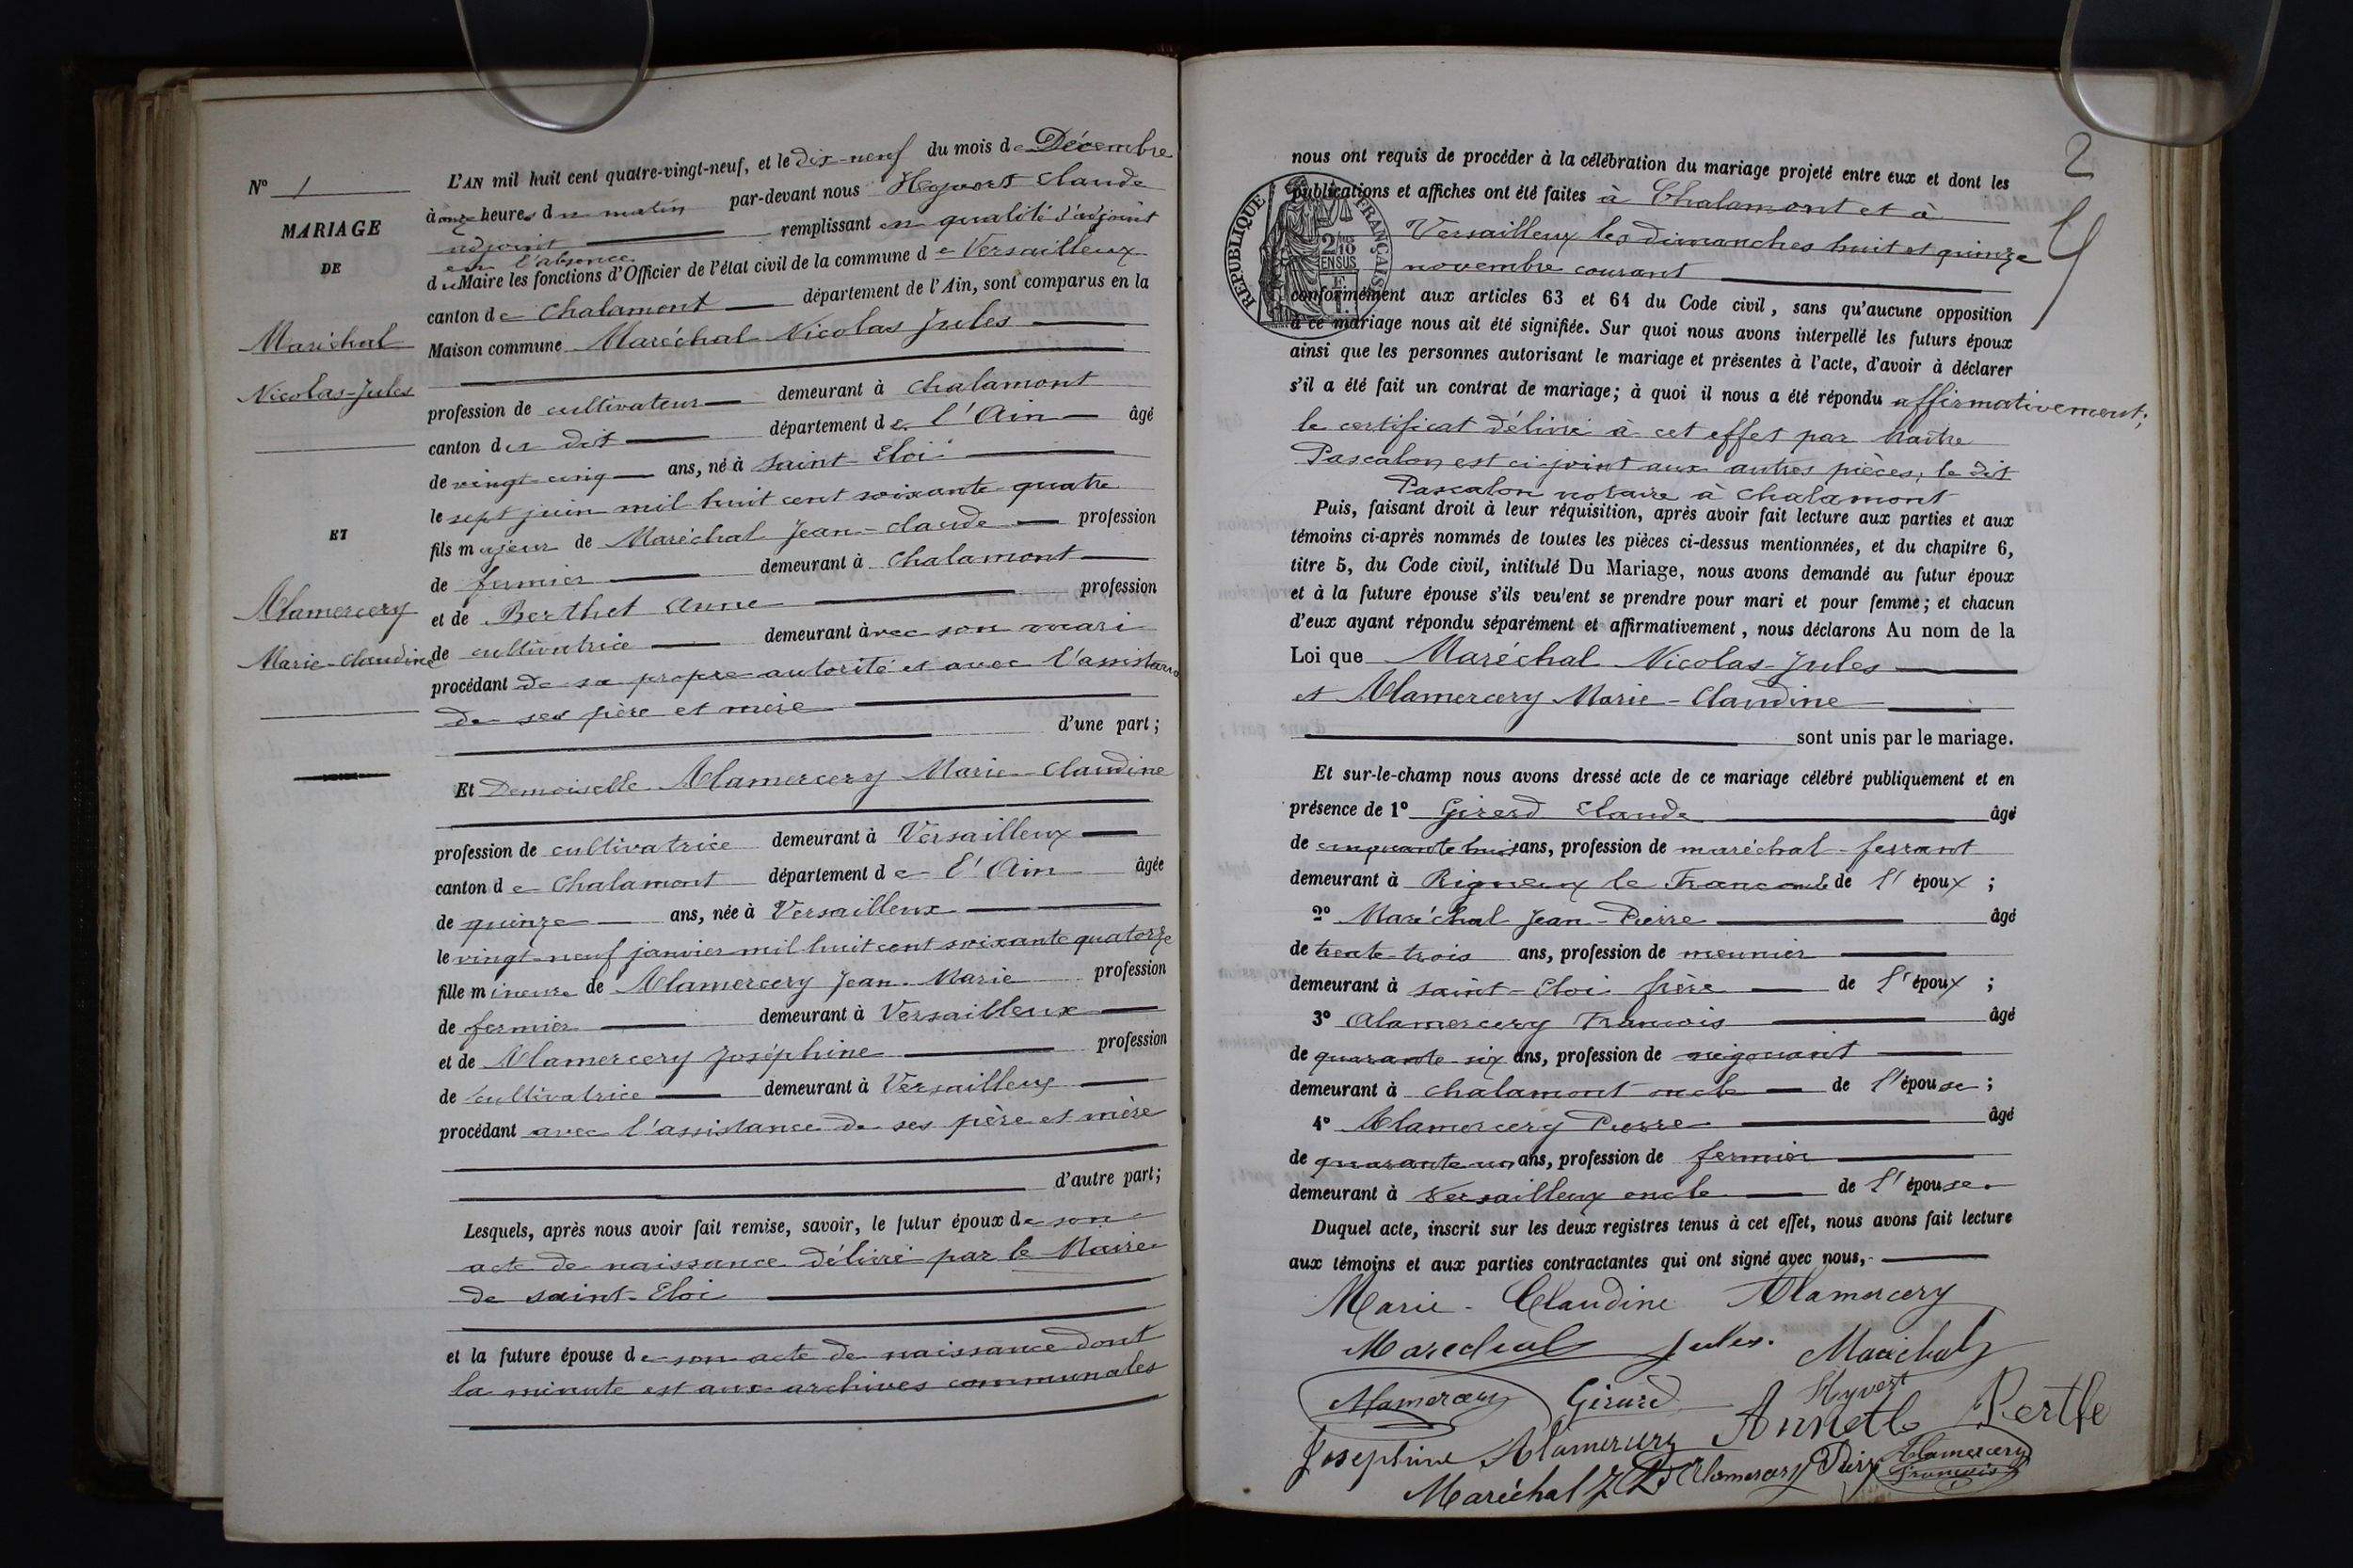 N° 1
MARIAGE
DE
Maréchal
Nicolas-Jules
ET
Alamercery
Marie-Claudine
L'AN mil huit cent quatre-vingt-neuf, et le dix-neuf du mois de Décembre
à onze heures du matin par-devant nous Hyvert Claude
adjoint remplissant en qualité d'adjoint
en l'absence
du Maire les fonctions d'Officier de l'état civil de la commune de Versailleux
canton de Chalamont département de l'Ain, sont comparus en la
Maison commune Maréchal Nicolas Jules
profession de cultivateur demeurant à Chalamont
canton du dit département de l'Ain âgé
de vingt-cinq ans, né à Saint-Eloi
le sept juin mil huit cent soixante-quatre
fils majeur de Maréchal Jean-Claude profession
de fermier demeurant à Chalamont
et de Berthet Anne profession
de cultivatrice demeurant avec son mari
procédant de sa propre autorité et avec l'assistance
de ses père et mère
d'une part;
Et Demoiselle Alamercery Marie-Claudine
profession de cultivatrice demeurant à Versailleux
canton de Chalamont département de l'Ain âgée
de quinze ans, née à Versailleux
le vingt-neuf janvier mil huit cent soixante quatorze
fille mineure de Alamercery Jean-Marie profession
de fermier demeurant à Versailleux
et de Alamercery Joséphine profession
de cultivatrice demeurant à Versailleux
procédant avec l'assistance de ses père et mère
d'autre part;
Lesquels, après nous avoir fait remise, savoir, le futur époux de son
acte de naissance délivré par le Maire
de Saint-Eloi
et la future épouse de son acte de naissance dont
la minute est aux archives communales
2
nous ont requis de procéder à la célébration du mariage projeté entre eux et dont les
publications et affiches ont été faites à Chalamont et à
Versailleux les dimanches huit et quinze
novembre courant
RÉPUBLIQUE FRANÇAISE
conformément aux articles 63 et 64 du Code civil, sans qu'aucune opposition
à ce mariage nous ait été signifiée. Sur quoi nous avons interpellé les futurs époux
ainsi que les personnes autorisant le mariage et présentes à l'acte, d'avoir à déclarer
s'il a été fait un contrat de mariage; à quoi il nous a été répondu affirmativement;
le certificat délivré à cet effet par Maître
Pascalon est ci-joint aux autres pièces, le dit
Pascalon notaire à Chalamont
Puis, faisant droit à leur réquisition, après avoir fait lecture aux parties et aux
témoins ci-après nommés de toutes les pièces ci-dessus mentionnées, et du chapitre 6,
titre 5, du Code civil, intitulé Du Mariage, nous avons demandé au futur époux
et à la future épouse s'ils veulent se prendre pour mari et pour femme; et chacun
d'eux ayant répondu séparément et affirmativement, nous déclarons Au nom de la
Loi que Maréchal Nicolas-Jules
et Alamercery Marie-Claudine
sont unis par le mariage.
Et sur-le-champ nous avons dressé acte de ce mariage célébré publiquement et en
présence de 1° Girerd Claude âgé
de cinquante huit ans, profession de maréchal-ferrant
demeurant à Rigneux le Franc de l'époux;
2° Maréchal Jean-Pierre âgé
de trente-trois ans, profession de meunier
demeurant à Saint-Eloi frère de l'époux;
3° Alamercery François âgé
de quarante-six ans, profession de négociant
demeurant à Chalamont oncle de l'épouse;
4° Alamercery Pierre âgé
de quarante un ans, profession de fermier
demeurant à Versailleux oncle de l'épouse.
Duquel acte, inscrit sur les deux registres tenus à cet effet, nous avons fait lecture
aux témoins et aux parties contractantes qui ont signé avec nous,
Marie-Claudine Alamercery
Marechal Jules. Maréchal
Alamercery Girerd Hyvert
Josephine Alamercery Annette Berthe
Maréchal J P Alamercery Pierre Alamercery
François